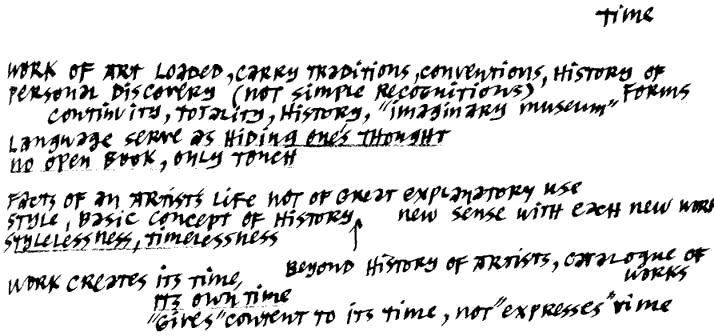 TIME
WORK OF ART LOADED, CARRY TRADITIONS, CONVENTIONS, HISTORY OF FORMS
PERSONAL DISCOVERY (NOT SIMPLE RECOGNITIONS)
CONTINUITY, TOTALITY, HISTORY, "IMAGINARY MUSEUM"
LANGUAGE SERVE AS HIDING ONE'S THOUGHT
NO OPEN BOOK, ONLY TOUCH
FACTS OF AN ARTIST'S LIFE NOT OF GREAT EXPLANATORY USE
STYLE, BASIC CONCEPT OF HISTORY NEW SENSE WITH EACH NEW WORK
STYLELESSNESS, TIMELESSNESS
BEYOND HISTORY OF ARTISTS, CATALOGUE OF WORKS
WORK CREATES ITS TIME,
ITS OWN TIME
"GIVES" CONTENT TO ITS TIME, NOT "EXPRESSES" TIME